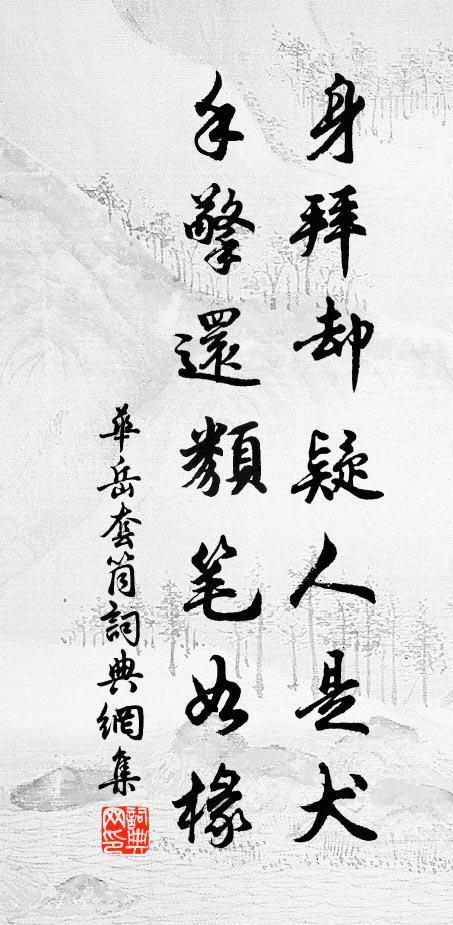 身拜却疑人是犬
手擎還類笔如椽
華岳套筒詞典網集
詞典網印